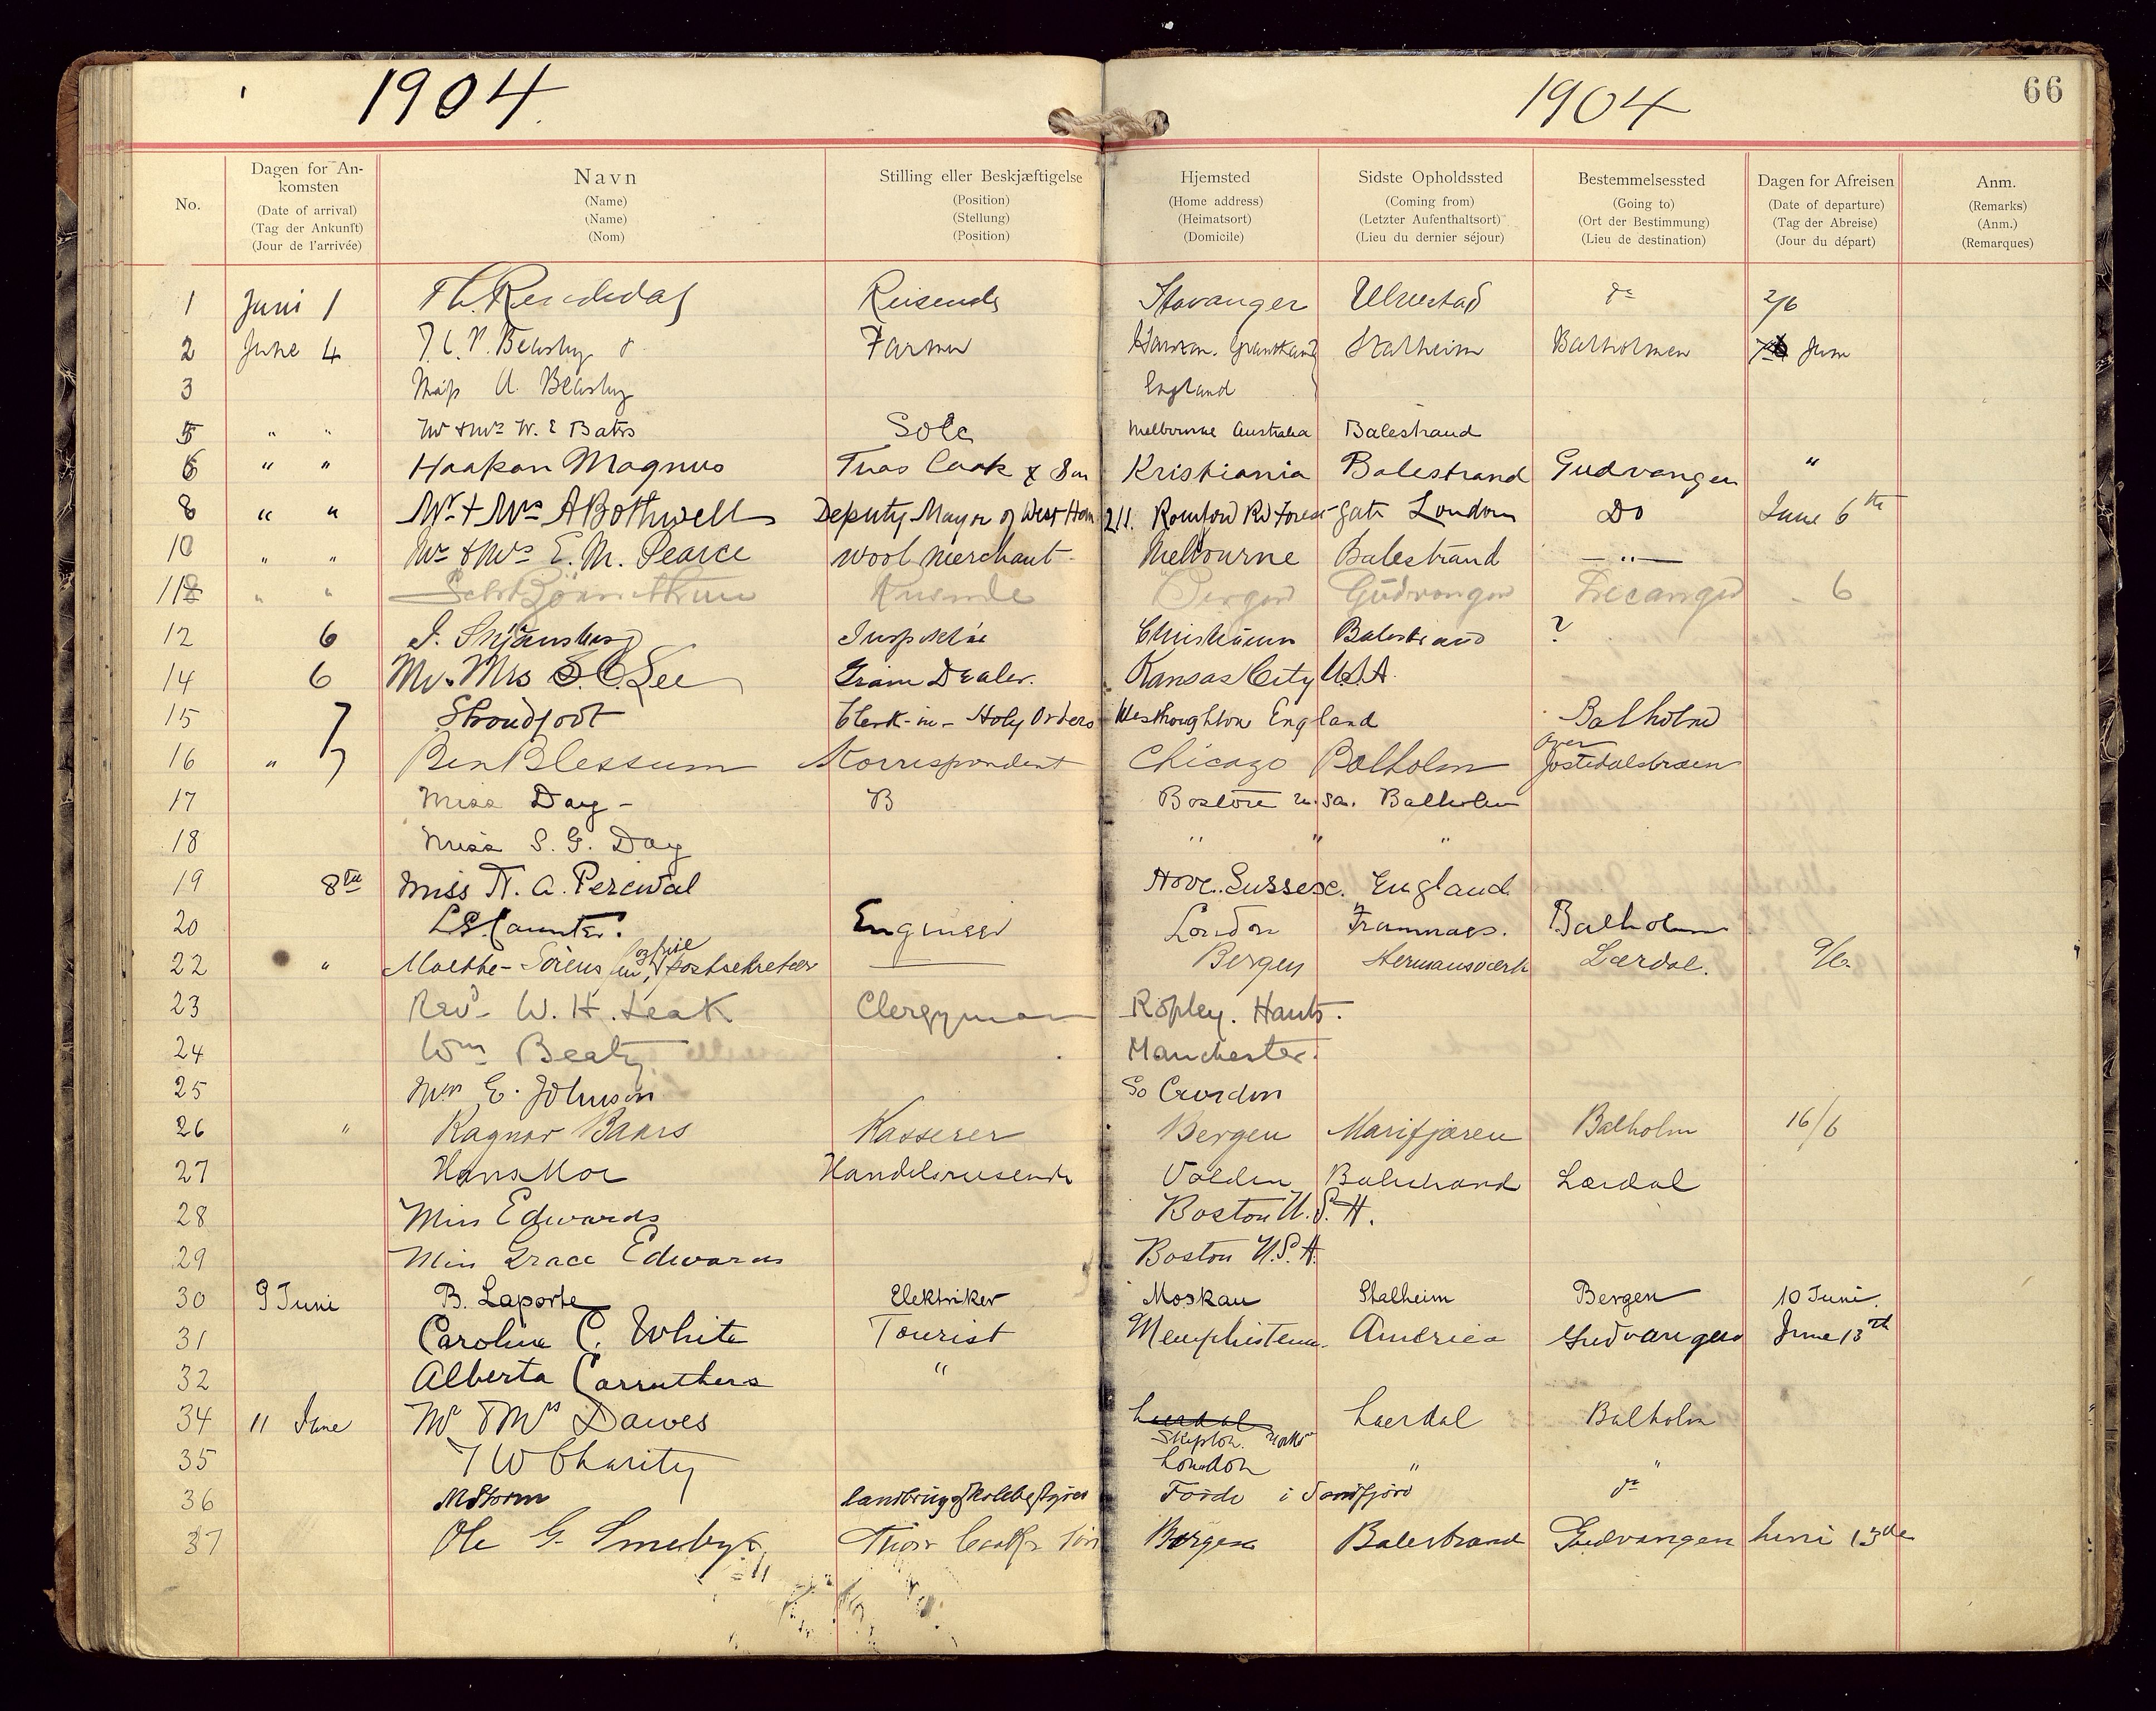 1904
1904
66
No.
Dagen for Ankomsten
(Date of arrival)
(Tag der Ankunft)
(Jour de l'arrivée)
Navn
(Name)
(Name)
(Nom)
Stilling eller Beskjæftigelse
(Position)
(Stellung)
(Position)
Hjemsted
(Home address)
(Heimatsort)
(Domicile)
Sidste Opholdssted
(Coming from)
(Letzter Aufenthaltsort)
(Lieu du dernier séjour)
Bestemmelsessted
(Going to)
(Ort der Bestimmung)
(Lieu de destination)
Dagen for Afreisen
(Date of departure)
(Tag der Abreise)
(Jour du départ)
Anm.
(Remarks)
(Anm.)
(Remarques)
1 Juni 1 Reisende Stavanger 2/6
2 June 4 Farmer Stalheim Balholmen June
3 England
5 " " Mr & Mrs W. E Bates Melbourne Australia Balestrand
6 " " Haakon Magnus Thos Cook & Son Kristiania Balestrand Gudvangen "
8 " " Mr + Mrs A Bothwell Deputy Mayor of West Ham 211. Romford Rd Forest Gate London Do June 6th
10 " " Mr & Mrs E. M. Pearce Wool Merchant Melbourne Balestrand — " —
" " Bergen Gudvangen 6
12 6 Balestrand ?
14 6 Mr. Mrs S. C. Lee Grain Dealer. Kansas City U.S.A.
15 7 Stroudfoot Clerk-in-Holy Orders Westhoughton England Balholm
16 " 7 Ben Blessum Korrespondent Chicago Balholm over Jostedalsbræen
17 Miss Day - B Boston U.S.A. Balholm
18 Miss S. G. Day " " "
19 8th Miss A. Percival Hove. Sussex. England
20 Engineer London Framnaes. Balholm
22 " Bergen Hermansværk Lærdal. 9/6
23 Revd. W. H. Leak Clergyman Ropley. Hants.
24 Wm Beaty Manchester.
25 Mrs E. Johnson So Croydon
26 " Ragnar Baars Kasserer Bergen Marifjæren Balholm 16/6
27 Hans Moe Handelsreisende Balestrand Lærdal
28 Miss Edwards Boston U.S.A.
29 Miss Grace Edwards Boston U.S.A.
30 9 Juni B. Laporte Elektriker Moskau Stalheim Bergen 10 Juni.
31 Caroline C. White Tourist Memphis Tenn. America Gudvangen June 13th
32 Alberta Carruthers "
34 11 June Mr & Mrs Dawes Laerdal Skipton. Yorks Laerdal Balholm
35 T W Charity London " "
36 M Storm Landbrugsskolebestyrer Förde i Søndfjord do
37 Ole G. Smeby Thos Cook & Son Bergen Balestrand Gudvangen Juni 13de